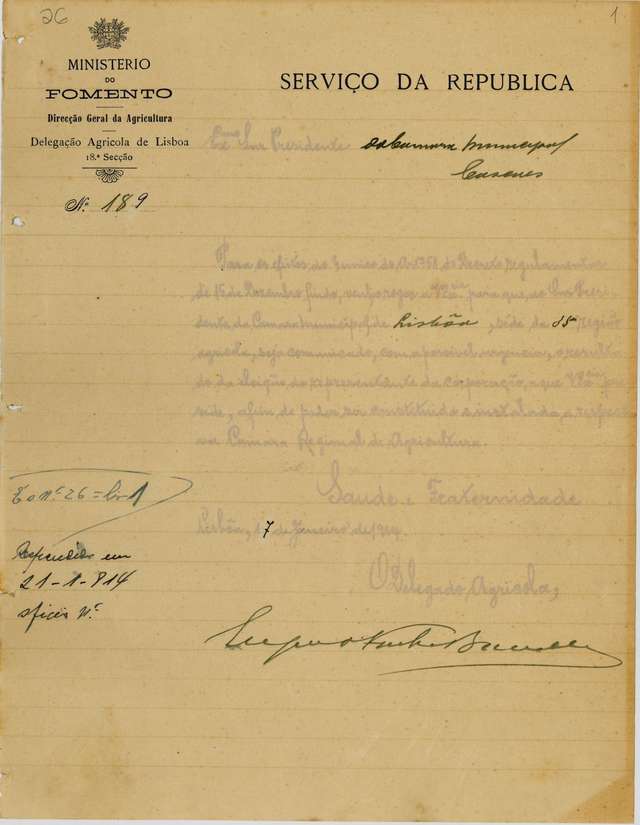 26
1
MINISTERIO
DO
FOMENTO
Direcção Geral da Agricultura
Delegação Agricola de Lisboa
18.ª Secção
Nº 189
SERVIÇO DA REPUBLICA
Exmo Snr Presidente da Camara Municipal
Para os efeitos do § unico do Artº 58 do Decreto regulamentar
de 15 de Dezembro findo, venho rogar a V. Exª para que, ao Snr Presi-
dente da Camara Municipal de Lisbôa, séde da 15ª região
agricola, seja comunicado, com a possivel urgencia, o resulta-
do da eleição do representante da corporação, a que V. Exª pre-
side, afim de poder ser constituida e instalada, a respecti-
va Camara Regional de Agricultura.
Saude e Fraternidade
Lisbôa, 17 de Janeiro de 1914.
O Delegado Agricola,
E o nº 26 = Lº 1
Respondido em
21-1-914
oficio nº